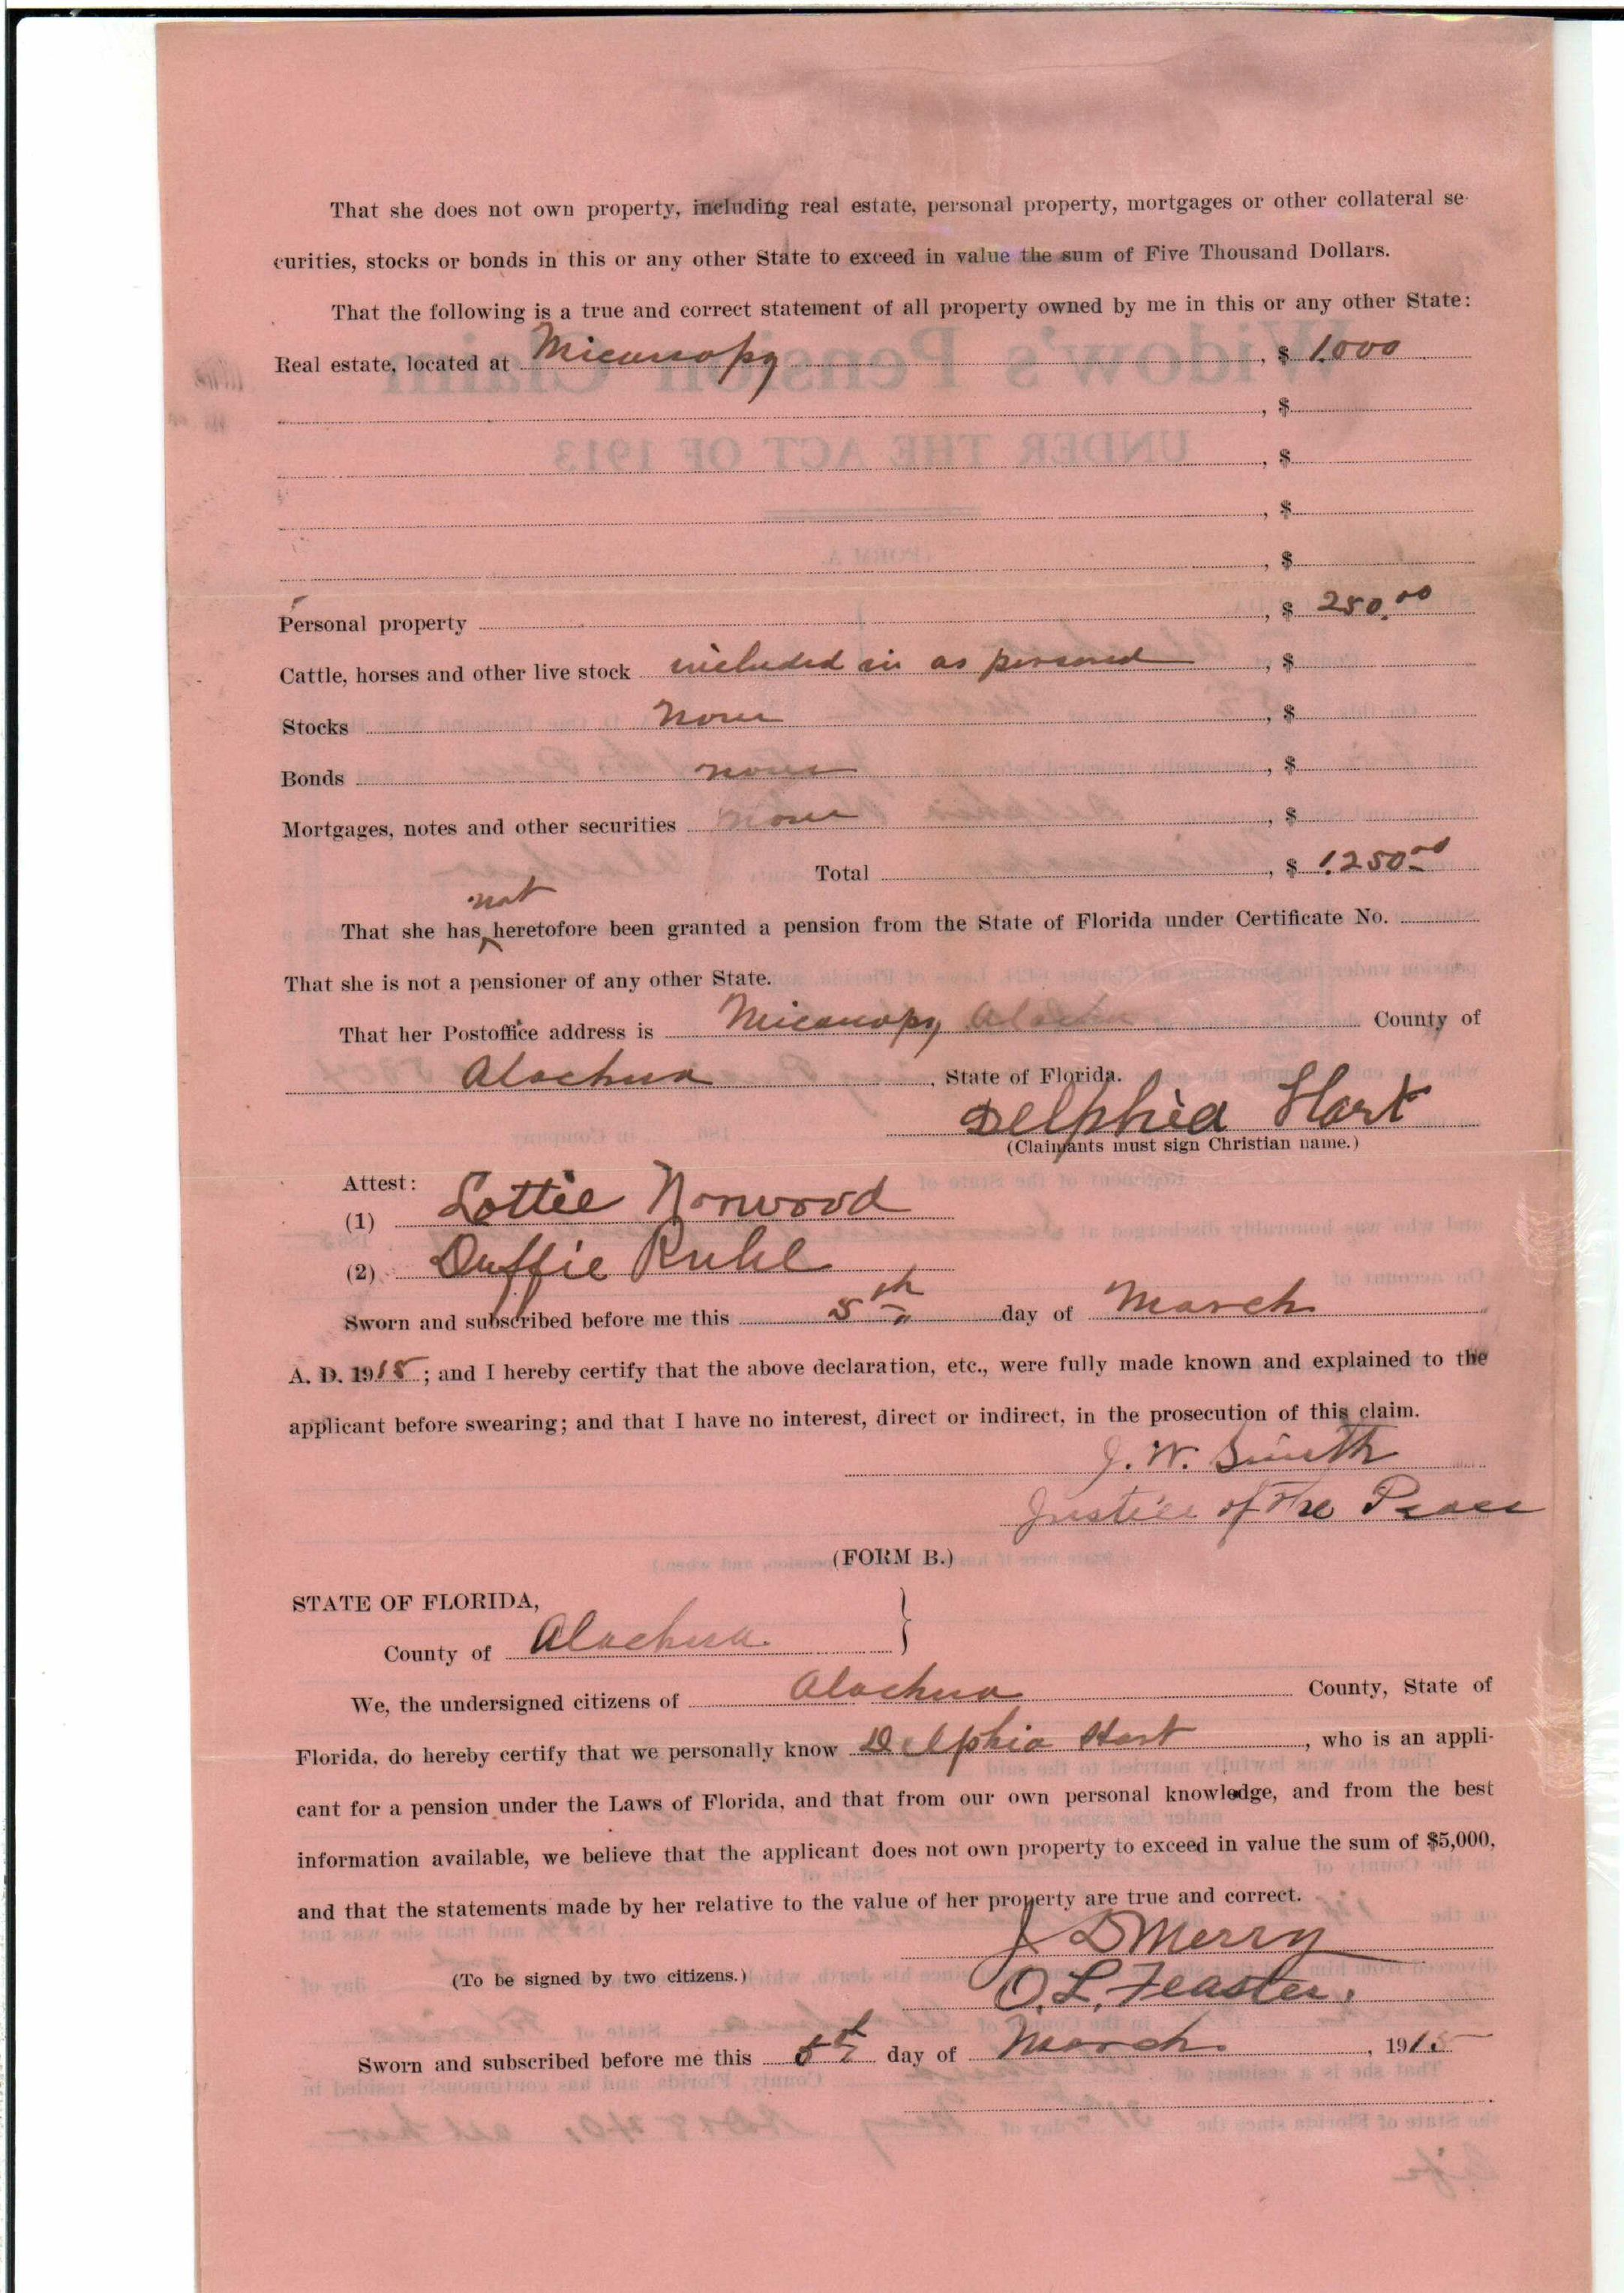 That she does not own property, including real estate, personal property, mortgages or other collateral se-
curities, stocks or bonds in this or any other State to exceed in value the sum of Five Thousand Dollars.
That the following is a true and correct statement of all property owned by me in this or any other State:
Real estate, located at Micanopy, $ 1000
, $
, $
, $
, $
Personal property, $ 250.00
Cattle, horses and other live stock included in as personal, $
Stocks none, $
Bonds none, $
Mortgages, notes and other securities none, $
Total, $ 1250.00
not
That she has heretofore been granted a pension from the State of Florida under Certificate No.
That she is not a pensioner of any other State.
That her Postoffice address is Micanopy County of
Alachua, State of Florida.
Delphia Hart
(Claimants must sign Christian name.)
Attest:
(1) Lottie Norwood
(2) Duffie Ruhl
Sworn and subscribed before me this 5th day of March
A. D. 1915; and I hereby certify that the above declaration, etc., were fully made known and explained to the
applicant before swearing; and that I have no interest, direct or indirect, in the prosecution of this claim.
J. W. Smith
Justice of the Peace
(FORM B.)
STATE OF FLORIDA,
County of Alachua }
We, the undersigned citizens of Alachua County, State of
Florida, do hereby certify that we personally know Delphia Hart, who is an appli-
cant for a pension under the Laws of Florida, and that from our own personal knowledge, and from the best
information available, we believe that the applicant does not own property to exceed in value the sum of $5,000,
and that the statements made by her relative to the value of her property are true and correct.
J D Merry
(To be signed by two citizens.)
O. L. Feaster.
Sworn and subscribed before me this 5th day of March, 1915